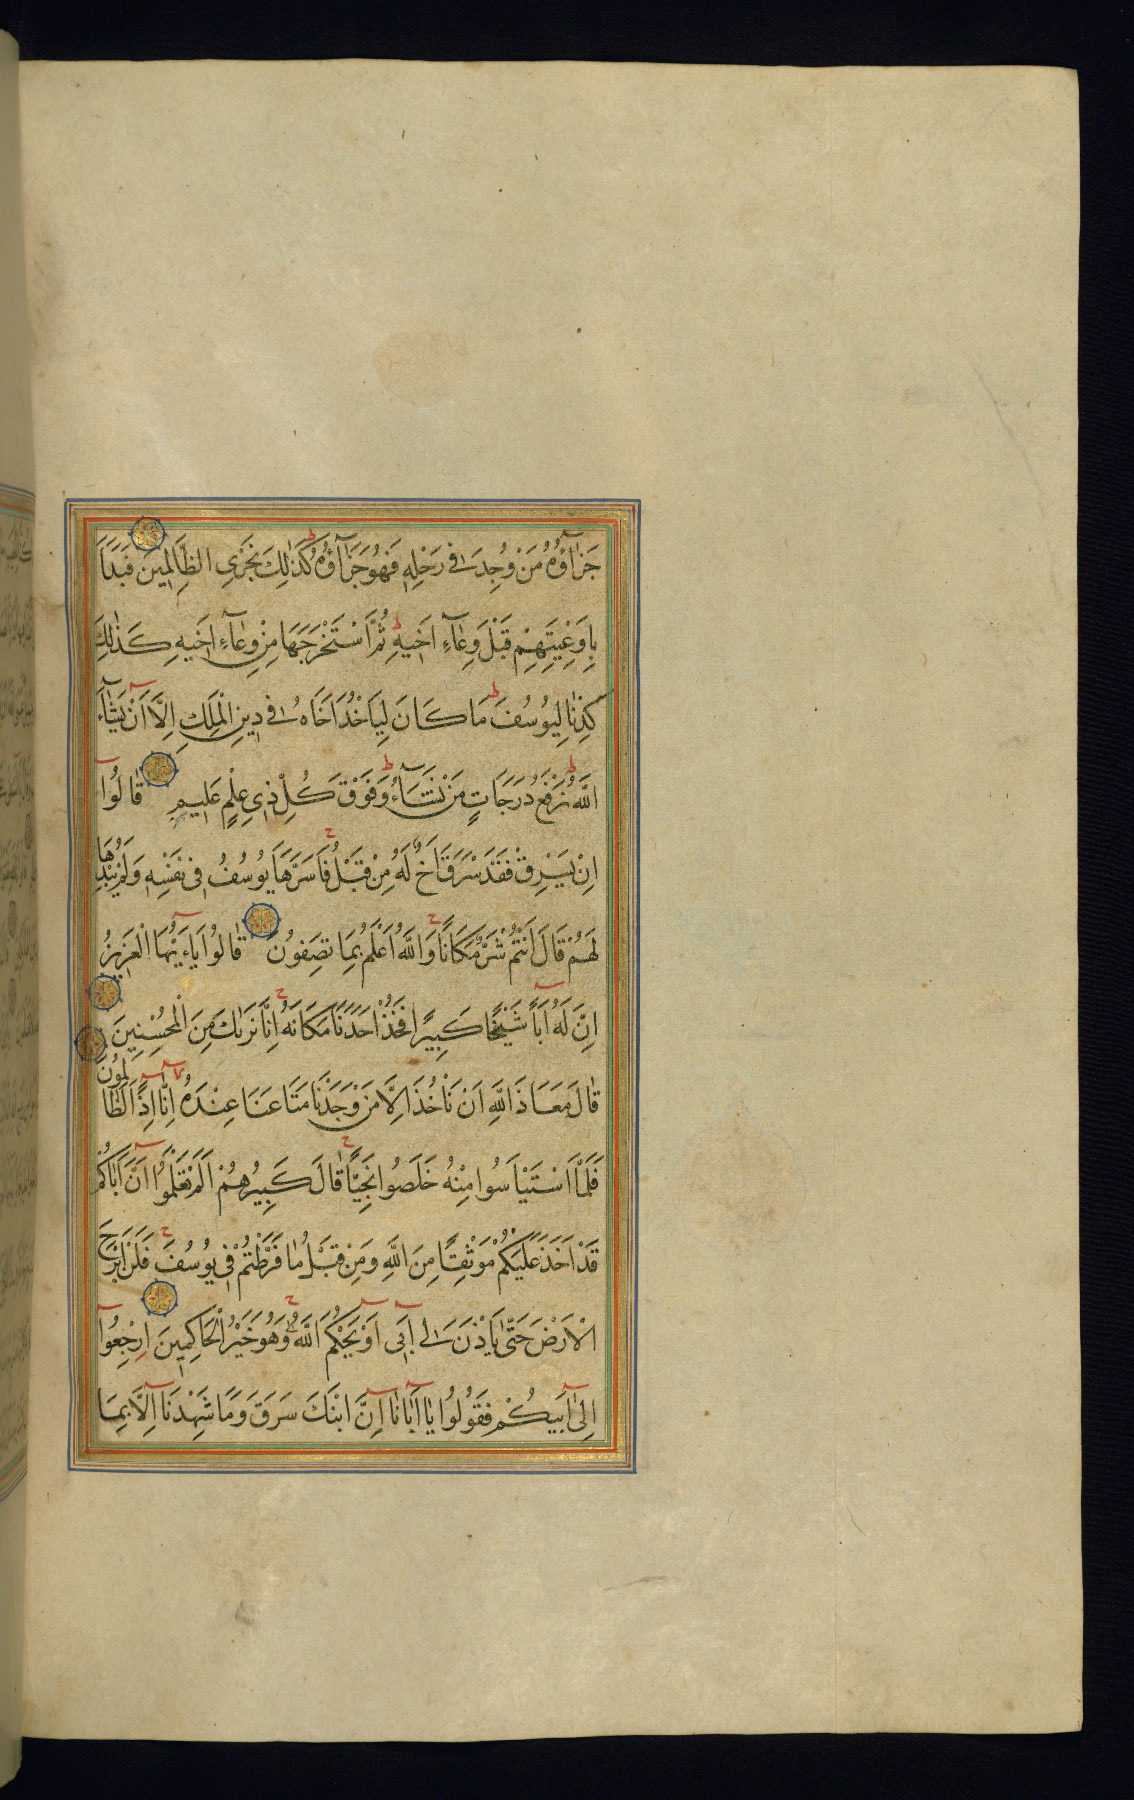 جَزَآؤُهُ مَنْ وُجِدَ فِي رَحْلِهِ فَهُوَ جَزَآؤُهُ كَذٰلِكَ نَجْزِي الظَّالِمِينَ فَبَدَأَ
بِاَوْعِيَتِهِمْ قَبْلَ وِعَآءِ اَخِيهِ ثُمَّ اسْتَخْرَجَهَا مِنْ وِعَآءِ اَخِيهِ كَذٰلِكَ
كِدْنَا لِيُوسُفَ مَا كَانَ لِيَاْخُذَ اَخَاهُ فِي دِينِ الْمَلِكِ اِلَّآ اَنْ يَشَآءَ
اللّٰهُ نَرْفَعُ دَرَجَاتٍ مَنْ نَشَآءُ وَفَوْقَ كُلِّ ذِي عِلْمٍ عَلِيمٌ قَالُوآ
اِنْ يَسْرِقْ فَقَدْ سَرَقَ اَخٌ لَهُ مِنْ قَبْلُ فَاَسَرَّهَا يُوسُفُ فِي نَفْسِهِ وَلَمْ يُبْدِهَا
لَهُمْ قَالَ اَنْتُمْ شَرٌّ مَكَانًا وَاللّٰهُ اَعْلَمُ بِمَا تَصِفُونَ قَالُوا يَآ اَيُّهَا الْعَزِيزُ
اِنَّ لَهُ اَبًا شَيْخًا كَبِيرًا فَخُذْ اَحَدَنَا مَكَانَهُ اِنَّا نَرٰيكَ مِنَ الْمُحْسِنِينَ
قَالَ مَعَاذَ اللّٰهِ اَنْ نَاْخُذَ اِلَّا مَنْ وَجَدْنَا مَتَاعَنَا عِنْدَهُ اِنَّآ اِذًا لَظَالِمُونَ
فَلَمَّا اسْتَيْاَسُوا مِنْهُ خَلَصُوا نَجِيًّا قَالَ كَبِيرُهُمْ اَلَمْ تَعْلَمُوآ اَنَّ اَبَاكُمْ
قَدْ اَخَذَ عَلَيْكُمْ مَوْثِقًا مِنَ اللّٰهِ وَمِنْ قَبْلُ مَا فَرَّطْتُمْ فِي يُوسُفَ فَلَنْ اَبْرَحَ
الْاَرْضَ حَتّٰى يَاْذَنَ لِي اَبِي اَوْ يَحْكُمَ اللّٰهُ لِي وَهُوَ خَيْرُ الْحَاكِمِينَ اِرْجِعُوآ
اِلٰى اَبِيكُمْ فَقُولُوا يَآ اَبَانَآ اِنَّ ابْنَكَ سَرَقَ وَمَا شَهِدْنَآ اِلَّا بِمَا